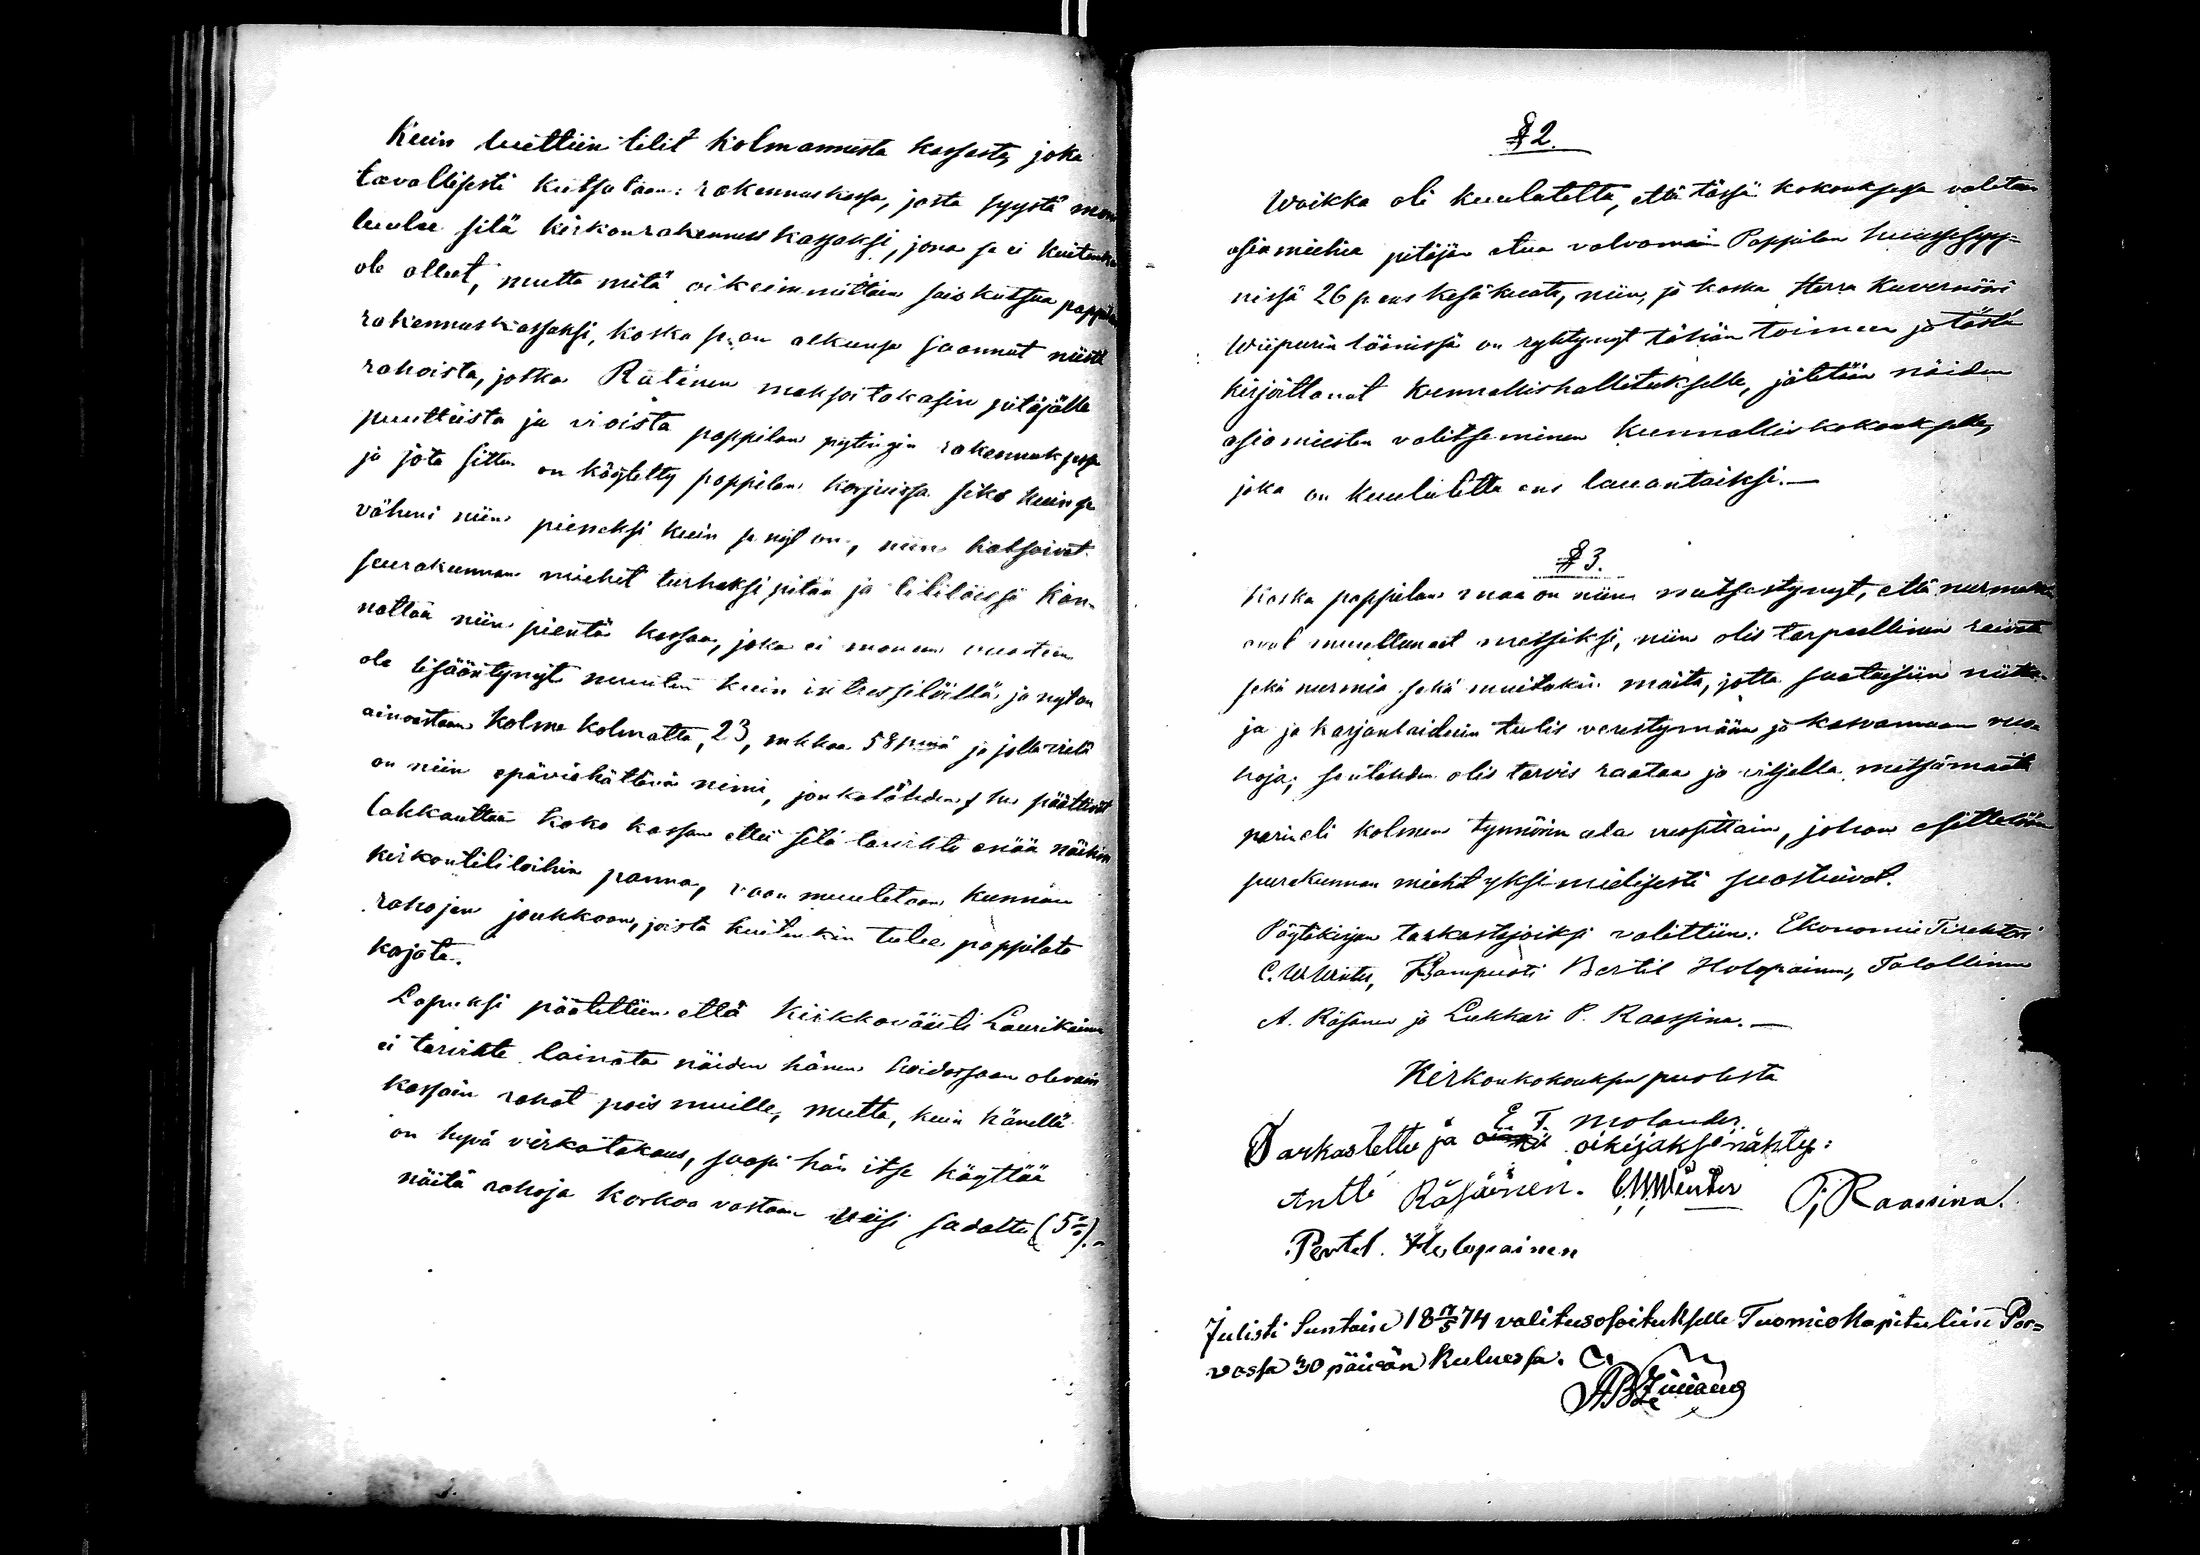 Kuin luettiin tilit kolmannesta kassasta, joka
tavallisesti kutsutaan: rakennuskassa, josta syystä moni
luulee sitä kirkonrakennuskassaksi, jona se ei kuitenkaan
ole ollut, mutta mitä oikeimmittain sais kutsua pappilan
rakennuskassaksi, koska se on alkunsa saanut niistä
rahoista, jotka Rätinen maksoi takasin pitäjälle
puutteista ja vioista pappilan pytingin rakennuksessa
ja jota sitten on käytetty pappilan korjuissa siks kuin se
väheni niin pieneksi kuin se nyt on, niin katsoivat
seurakunnan miehet turhaksi pitää ja tililöissä kan-
nattaa niin pientä kassaa, joka ei monena vuotena
ole lisääntynyt muuten kuin intressilöillä ja nyt on
ainoastaan kolme kolmatta, 23, mkkaa 58 penniä ja jolla vielä
on niin epäviehättävä nimi, jonkatähden he päättivät
lakkauttaa koko kassan ettei sitä tarvihte enää näihin
kirkontililöihin panna, vaan muutetaan kunnan
rahojen joukkoon, joista kuitenkin tulee pappilata
kojata.
Lopuksi päätettiin että kirkkoväärti Laurikainen
ei tarvihte lainata näiden hänen hoidossaan olevain
kassain rahat pois muille, mutta, kuin hänellä
on hyvä virkatakaus, saapi hän itse käyttää
näitä rahoja korkoa vastaan viisi sadalta (5%).-
§ 2.
Waikka oli kuulutettu, että tässä kokouksessa valitaan
asiamiehiä pitäjän etua valvomaan Pappilan huussyy-
nissä 26 p. ens kesäkuuta, niin, ja koska Herra Kuvernööri
Wiipurin läänissä on ryhtynyt tähän toimeen ja tästä
kirjoittanut kunnallishallitukselle, jätetään näiden
asiamiesten valitseminen kunnalliskokoukselle,
joka on kuulutettu ens lauantaiksi.—
§ 3.
Koska pappilan maa on niin metsästynyt, että nurmet
ovat muuttuneet metsiksi, niin olis tarpeellinen raivata
sekä nurmia sekä muitakin maita, jotta saataisiin niittu-
ja ja karjanlaidun tulis verestymään ja kasvamaan ruo-
hoja; sentähden olis tarvis raataa ja viljellä metsämaata
parin eli kolmen tynnörin ala vuosittain, johon esitelmään
seurakunnan miehet yksimielisesti suostuivat.
Pöytäkirjan tarkastajoiksi valittiin: Ekonomie Tirehtöri
C. W. Winter, Kampuoti Bertil Holopainen, Talollinen
A. Räsänen ja Lukkari P. Raassina.—
Kirkonkokouksen puolesta
E. F. Molander.
Tarkastettu ja oikijaksi nähty:
Antti Räsäinen. C W Winter P, Raassina.
Pertel. Holopainen
Julisti Suntaina 18 17/5 74 valitusosoituksella Tuomiokapituliin Por=
vossa 30 päivän kuluessa.